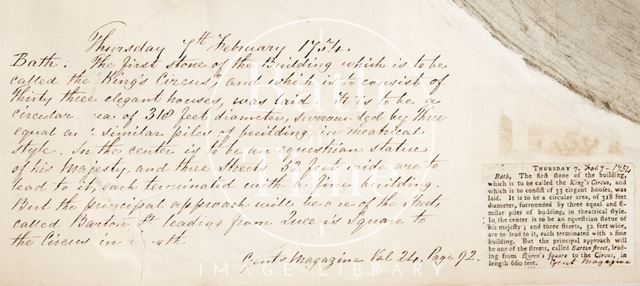 Thursday 7th February 1754.
Bath. The first stone of the Building which is to be
called the "King's Circus", and which is to consist of
thirty three elegant houses, was laid. It is to be a
circular area of 318 feet diameter, surrounded by three
equal and similar piles of building in theatrical
style. In the center is to be an equestrian statue
of his Majesty, and three Streets 52 feet wide are to
lead to it, each terminated with a fine building.
But the principal approach will be one of the streets
called Barton St leading from Queen's Square to
the Circus in length
Gent's Magazine Vol 24. Page 92.
THURSDAY 7. Feby 1754
Bath, The first stone of the building,
which is to be called the King's Circus, and
which is to consist of 33 elegant houses, was
laid. It is to be a circular area, of 318 feet
diameter, surrounded by three equal and si-
milar piles of building, in theatrical style.
In the center is to be an equestrian statue of
his majesty; and three streets, 52 feet wide,
are to lead to it, each terminated with a fine
building. But the principal approach will
be one of the streets, called Barton street, lead-
ing from Queen's square to the Circus, in
length 660 feet. Gent Magazine
IMAGE LIBRARY